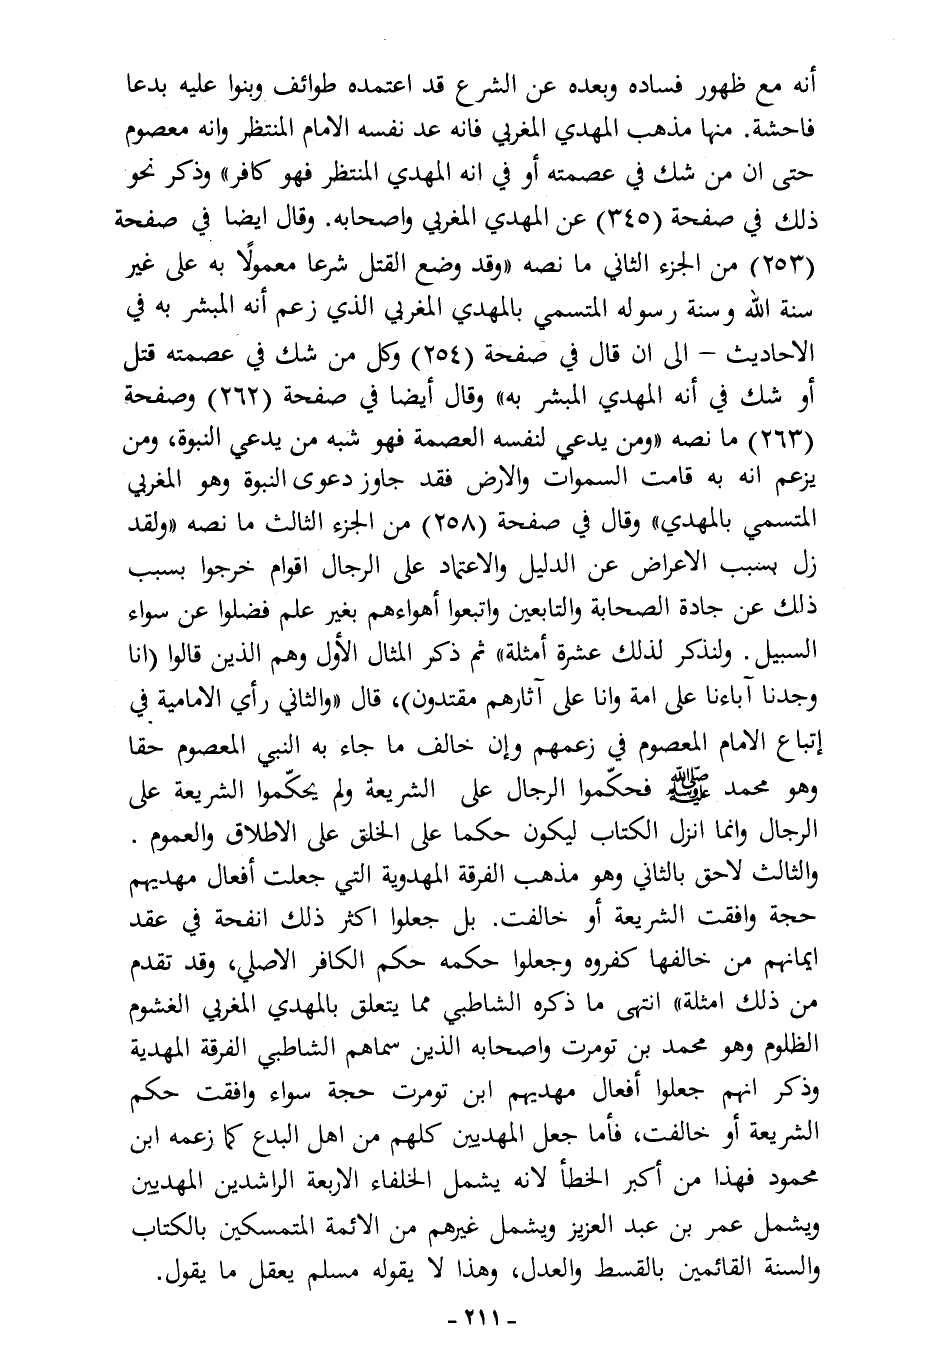 أنه مع ظهور فساده وبعده عن الشرع قد اعتمده طوائف وبنوا عليه بدعا
فاحشة. منها مذهب المهدي المغربي فانه عد نفسه الامام المنتظر وانه معصوم
حتى ان من شك في عصمته أو في انه المهدي المنتظر فهو كافر» وذكر نحو
ذلك في صفحة (٣٤٥) عن المهدي المغربي واصحابه. وقال ايضا في صفحة
(٢٥٣) من الجزء الثاني ما نصه «وقد وضع القتل شرعا معمولًا به على غير
سنة الله وسنة رسوله المتسمي بالمهدي المغربي الذي زعم أنه المبشر به في
الاحاديث – الى ان قال في صفحة (٢٥٤) وكل من شك في عصمته قتل
أو شك في أنه المهدي المبشر به» وقال أيضا في صفحة (٢٦٢) وصفحة
(٢٦٣) ما نصه «ومن يدعي لنفسه العصمة فهو شبه من يدعي النبوة، ومن
يزعم انه به قامت السموات والارض فقد جاوز دعوى النبوة وهو المغربي
المتسمي بالمهدي» وقال في صفحة (٢٥٨) من الجزء الثالث ما نصه «ولقد
زل بسبب الاعراض عن الدليل والاعتماد على الرجال اقوام خرجوا بسبب
ذلك عن جادة الصحابة والتابعين واتبعوا أهواءهم بغير علم فضلوا عن سواء
السبيل. ولنذكر لذلك عشرة أمثلة» ثم ذكر المثال الأول وهم الذين قالوا (انا
وجدنا آباءنا على امة وانا على آثارهم مقتدون)، قال «والثاني رأي الامامية في
إتباع الامام المعصوم في زعمهم وإن خالف ما جاء به النبي المعصوم حقا
وهو محمد ﷺ فحكّموا الرجال على الشريعة ولم يحكّموا الشريعة على
الرجال وانما انزل الكتاب ليكون حكما على الخلق على الاطلاق والعموم .
والثالث لاحق بالثاني وهو مذهب الفرقة المهدوية التي جعلت أفعال مهديهم
حجة وافقت الشريعة أو خالفت. بل جعلوا اكثر ذلك انفحة في عقد
ايمانهم من خالفها كفروه وجعلوا حكمه حكم الكافر الاصلي، وقد تقدم
من ذلك امثلة» انتهى ما ذكره الشاطبي مما يتعلق بالمهدي المغربي الغشوم
الظلوم وهو محمد بن تومرت واصحابه الذين سماهم الشاطبي الفرقة المهدية
وذكر انهم جعلوا أفعال مهديهم ابن تومرت حجة سواء وافقت حكم
الشريعة أو خالفت، فأما جعل المهديين كلهم من اهل البدع كما زعمه ابن
محمود فهذا من أكبر الخطأ لانه يشمل الخلفاء الاربعة الراشدين المهديين
ويشمل عمر بن عبد العزيز ويشمل غيرهم من الائمة المتمسكين بالكتاب
والسنة القائمين بالقسط والعدل، وهذا لا يقوله مسلم يعقل ما يقول.
- ٢١١ -